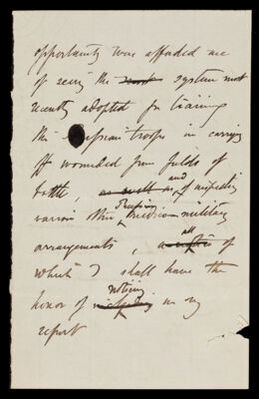 opportunity was afforded me
of seeing the system most
recently adopted for training
the troops in carrying
off wounded from fields of
battle, as well as, and of inspecting
various other Prussian military
arrangements, all of
which I shall have the
honor of noticing in my
report